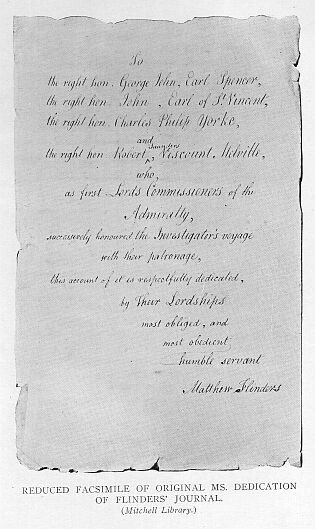 To
the right hon. George John, Earl Spencer,
the right hon. John, Earl of St. Vincent,
the right hon. Charles Philip Yorke,
and
the right hon Robert Saunders Viscount Melville,
who,
as first Lords Commissioners of the
Admiralty,
successively honoured the Investigator's voyage
with their patronage,
this account of it is respectfully dedicated,
by Their Lordships
most obliged, and
most obedient
humble servant
Matthew Flinders
REDUCED FACSIMILE OF ORIGINAL MS. DEDICATION
OF FLINDERS' JOURNAL.
(Mitchell Library.)